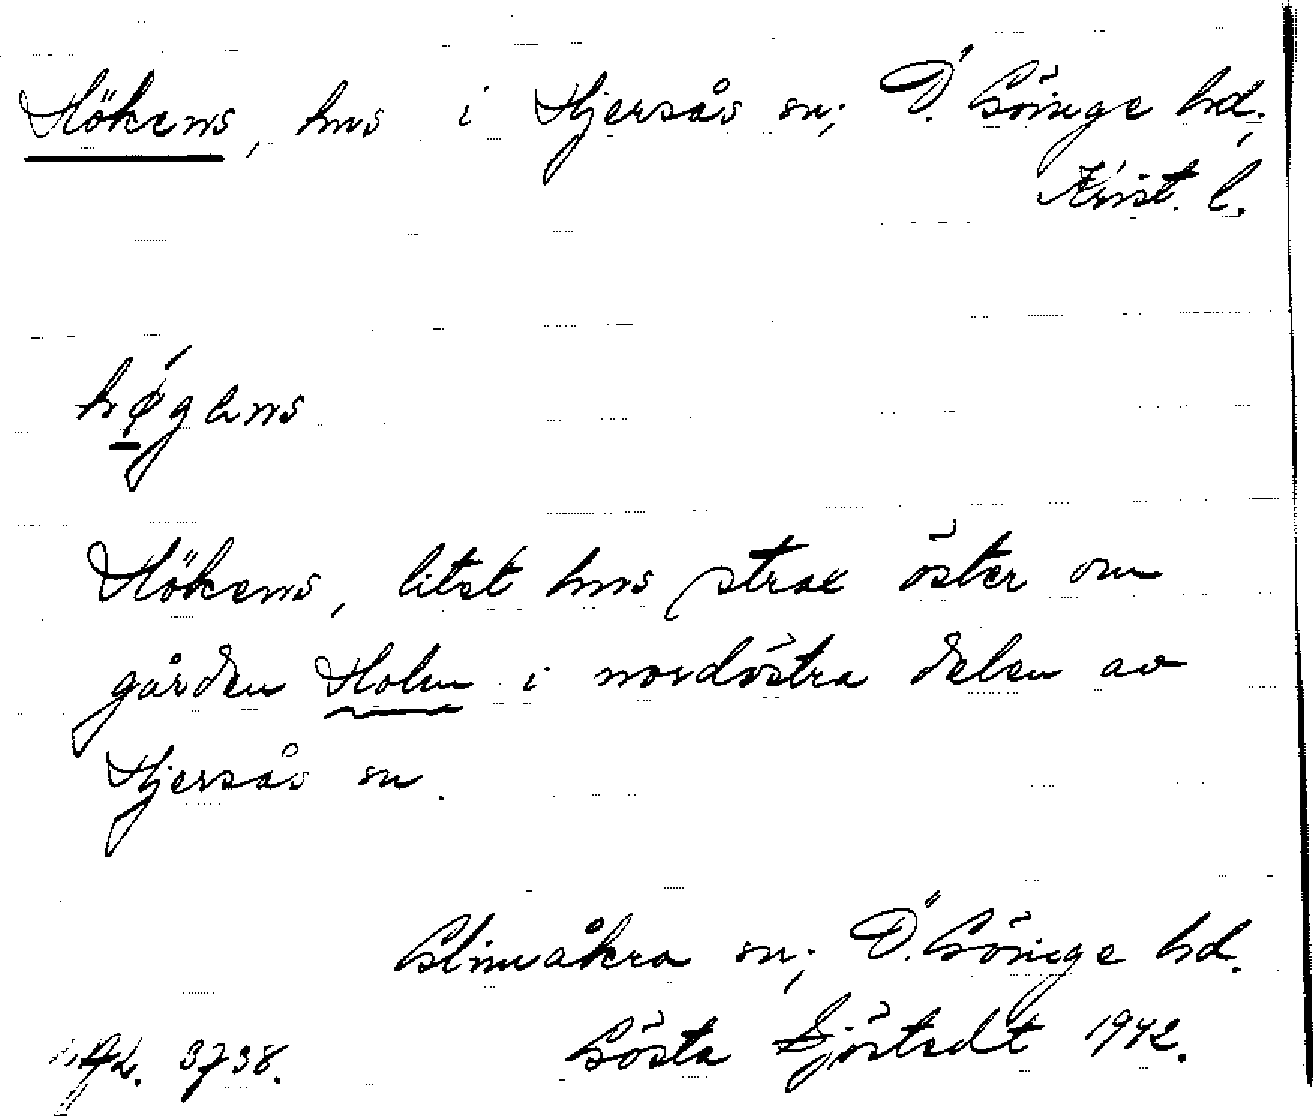 Hökens, hus i Hjersås sn; Ö. Göinge hd;
Krist. l.
høgens
Hökens, litet hus strax öster om
gården Holm i nordöstra delen av
Hjersås sn.
Glimåkra sn; Ö. Göinge hd.
3738. Gösta Sjöstedt 1942.